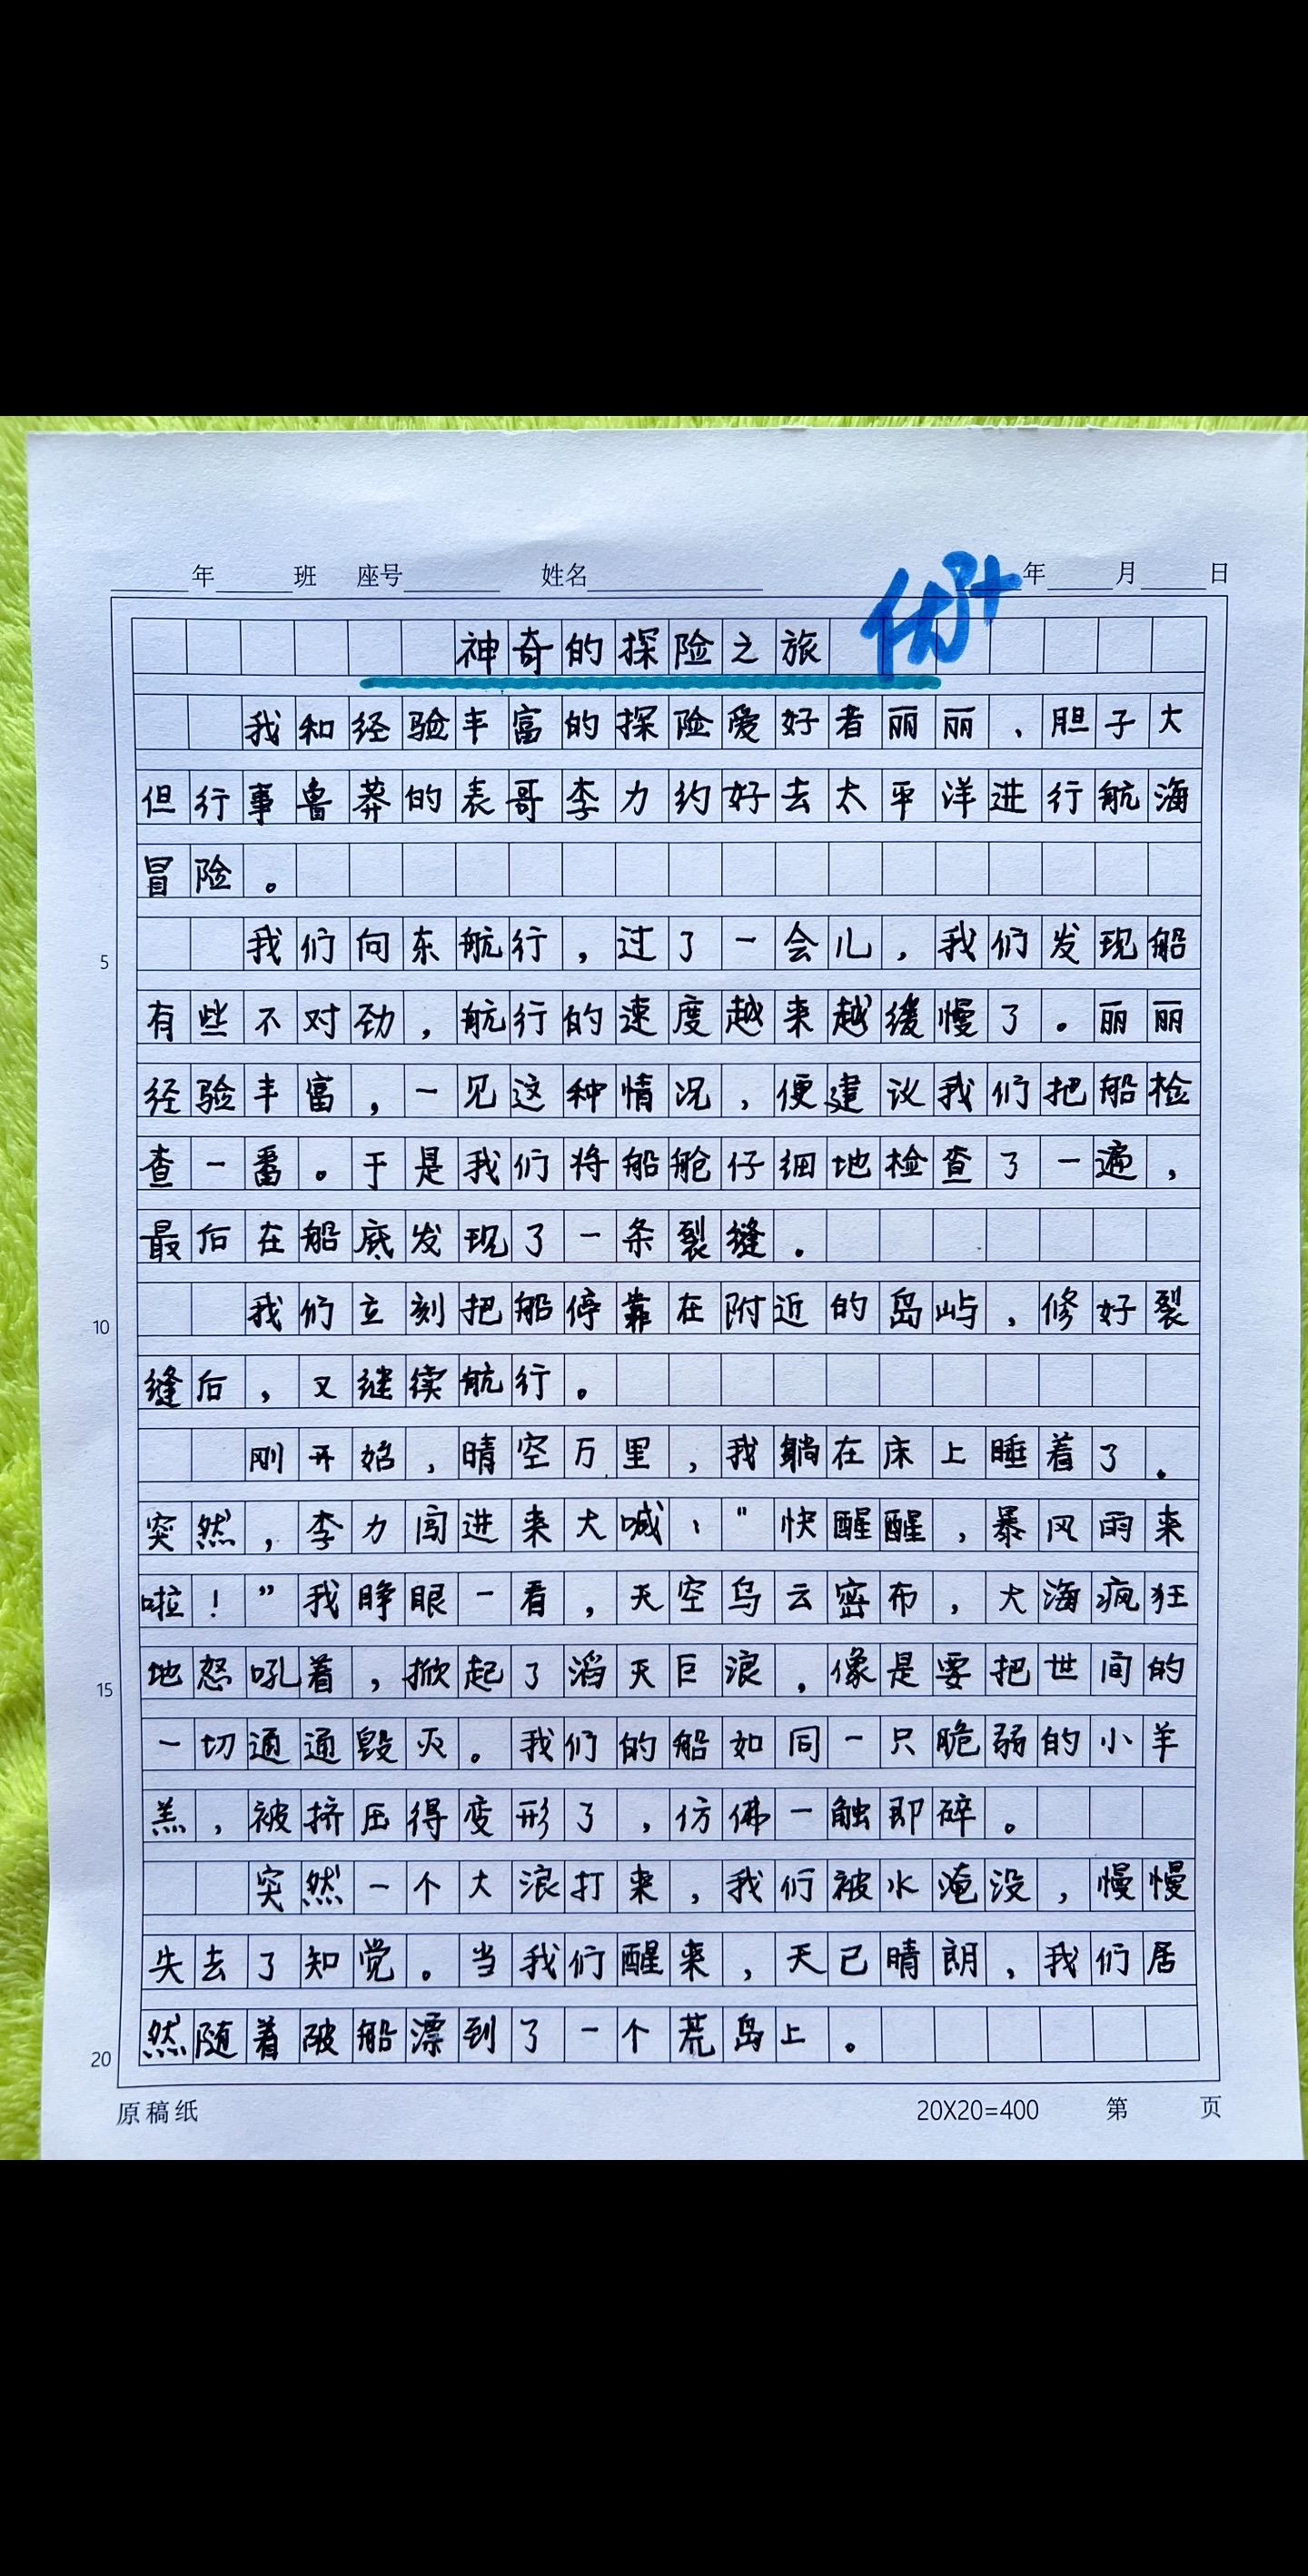 年 班 座号 姓名 年 月 日
优³⁺
神奇的探险之旅
我和经验丰富的探险爱好者丽丽、胆子大
但行事鲁莽的表哥李力约好去太平洋进行航海
冒险。
我们向东航行，过了一会儿，我们发现船
5
有些不对劲，航行的速度越来越缓慢了。丽丽
经验丰富，一见这种情况，便建议我们把船检
查一番。于是我们将船舱仔细地检查了一遍，
最后在船底发现了一条裂缝。
我们立刻把船停靠在附近的岛屿，修好裂
10
缝后，又继续航行。
刚开始，晴空万里，我躺在床上睡着了。
突然，李力闯进来大喊："快醒醒，暴风雨来
啦！”我睁眼一看，天空乌云密布，大海疯狂
地怒吼着，掀起了滔天巨浪，像是要把世间的
15
一切通通毁灭。我们的船如同一只脆弱的小羊
羔，被挤压得变形了，仿佛一触即碎。
突然一个大浪打来，我们被水淹没，慢慢
失去了知觉。当我们醒来，天已晴朗，我们居
然随着破船漂到了一个荒岛上。
20
原稿纸 20X20=400 第 页